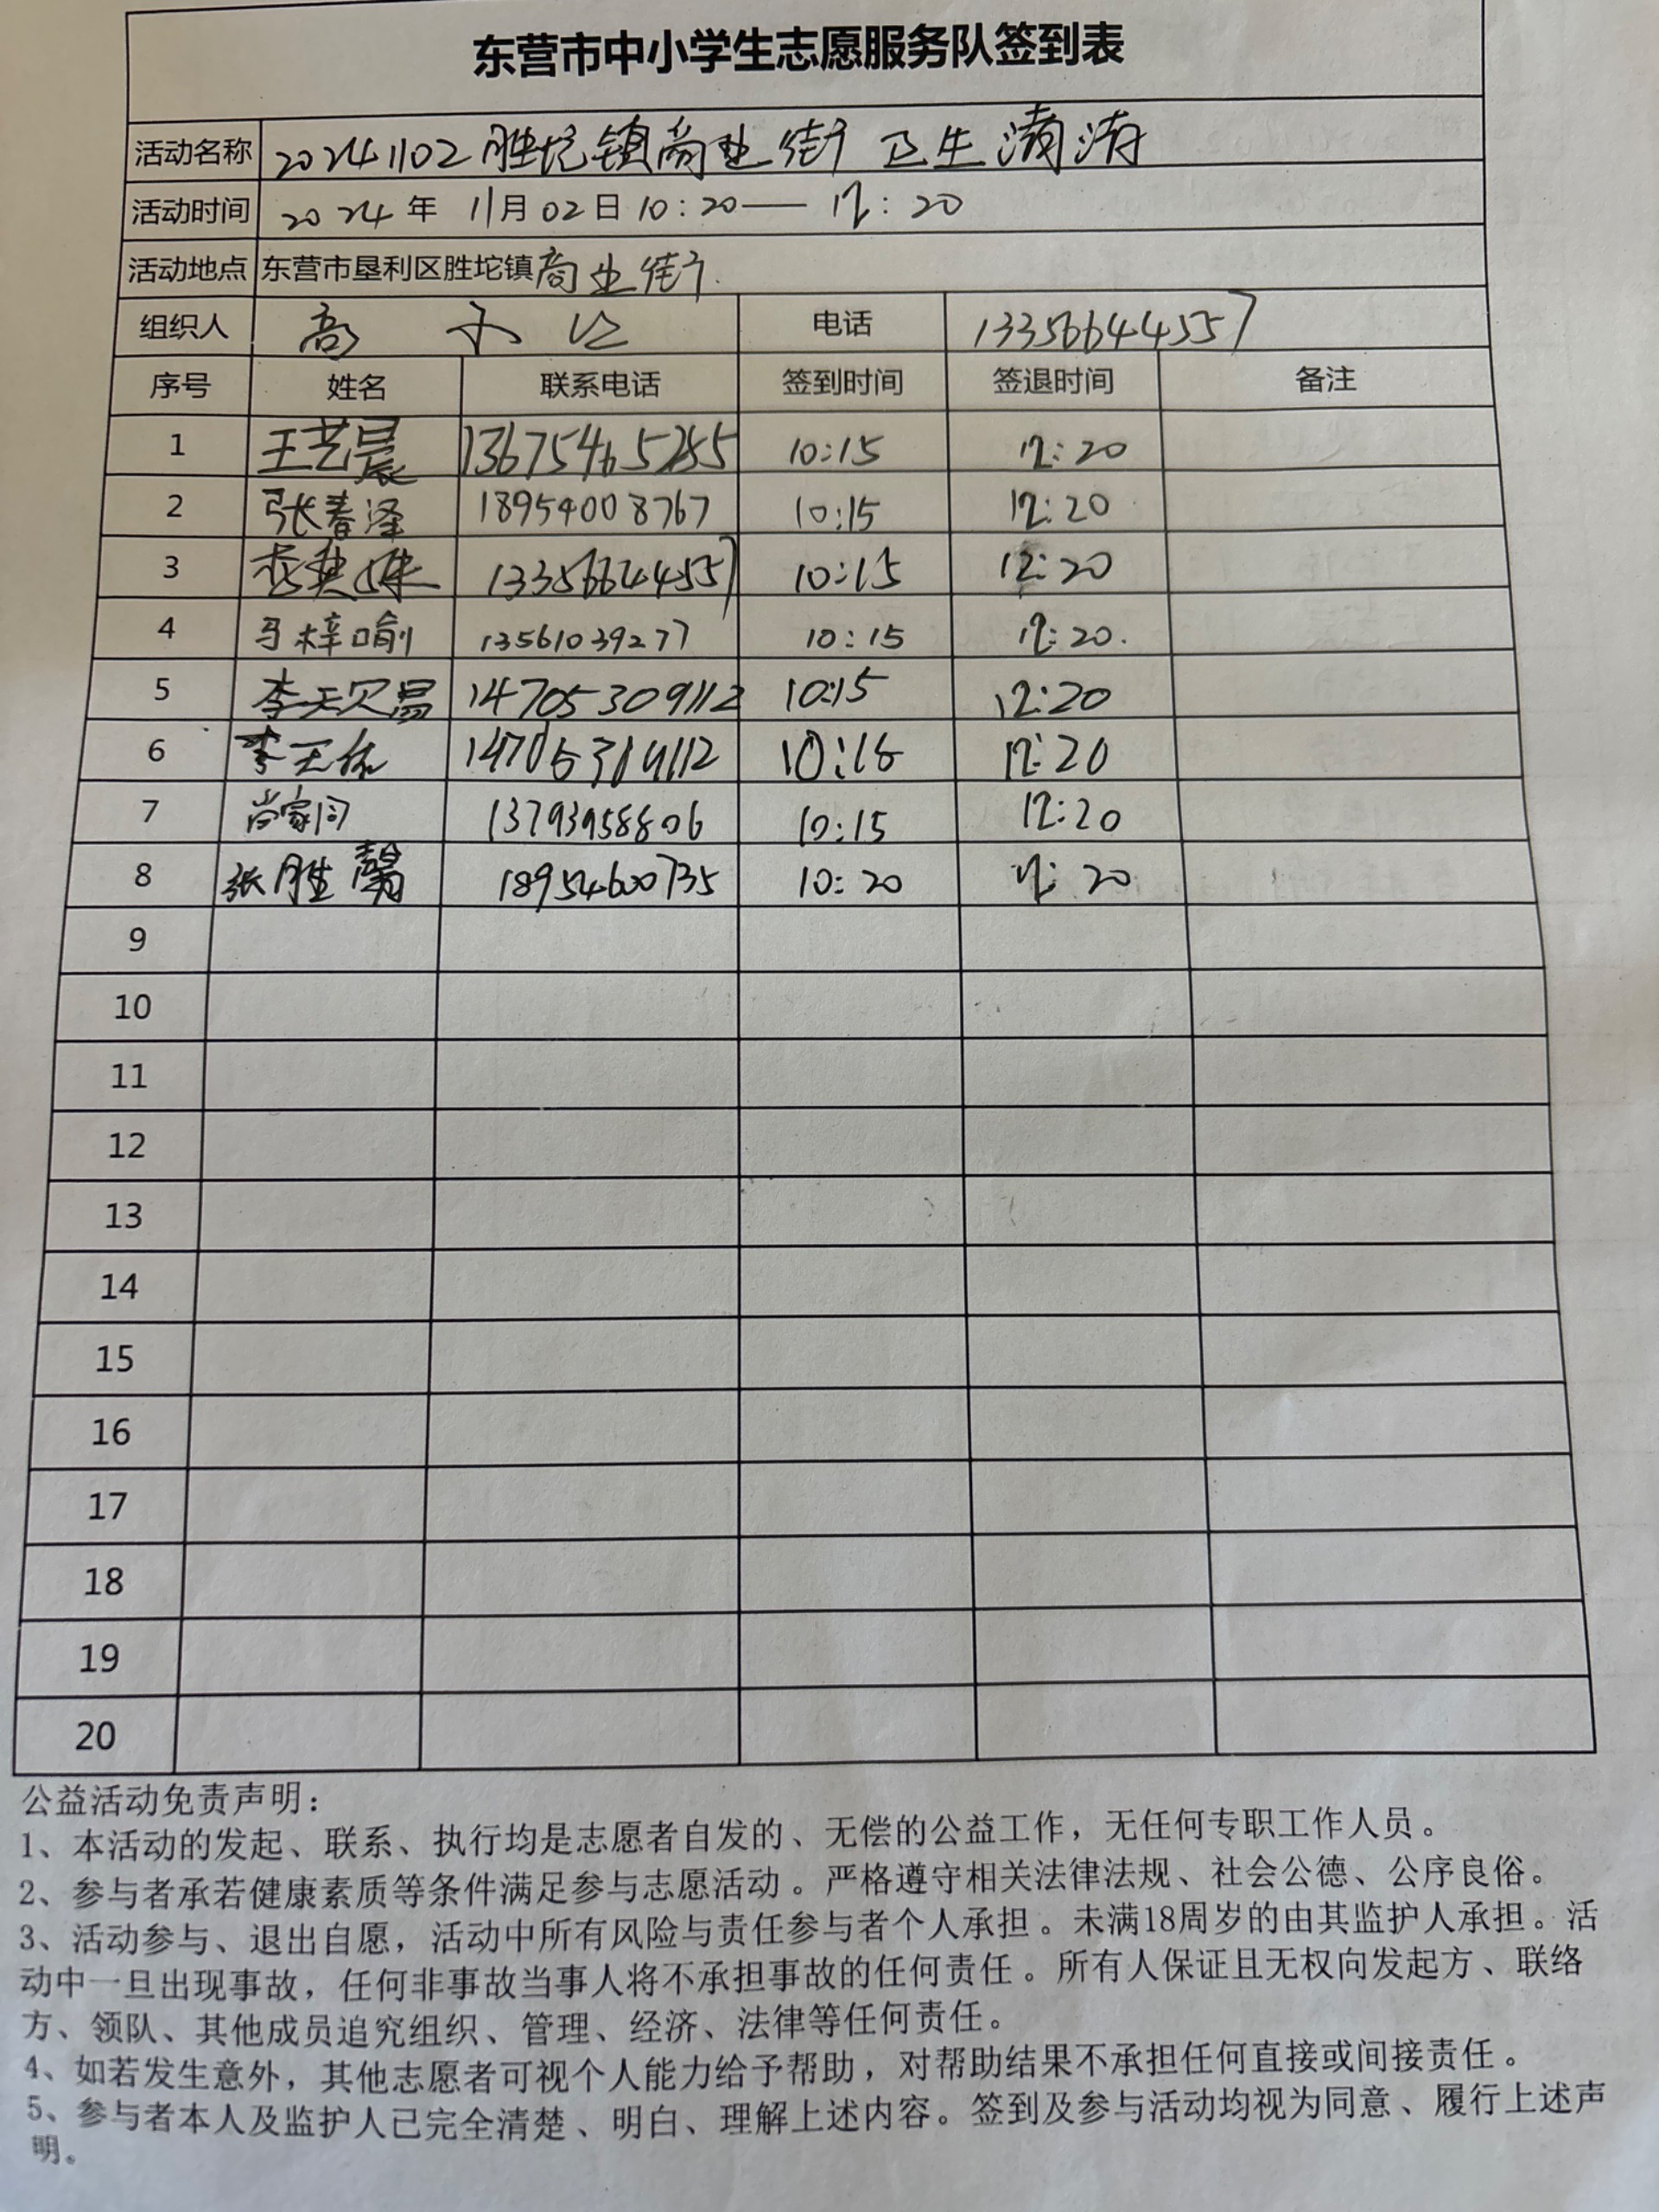 东营市中小学生志愿服务队签到表
活动名称 20241102胜坨镇商业街 卫生清洁
活动时间 2024年 11月02日10:20—— 12:20
活动地点 东营市垦利区胜坨镇商业街.
组织人 高 电话 13356644557
序号 姓名 联系电话 签到时间 签退时间 备注
1 王艺晨 13675465255 10:15 12:20
2 张春泽 18954008767 10:15 12:20
3 13356644557 10:15 12:20
4 马梓喻 13561039277 10:15 12:20.
5 李天贝 14705309112 10:15 12:20
6 李天佑 10:15 12:20
7 尚家同 13793958806 10:15 12:20
8 张胜馨 18954600735 10:20 12:20
9
10
11
12
13
14
15
16
17
18
19
20
公益活动免责声明：
1、本活动的发起、联系、执行均是志愿者自发的、无偿的公益工作，无任何专职工作人员。
2、参与者承若健康素质等条件满足参与志愿活动。严格遵守相关法律法规、社会公德、公序良俗。
3、活动参与、退出自愿，活动中所有风险与责任参与者个人承担。未满18周岁的由其监护人承担。活
动中一旦出现事故，任何非事故当事人将不承担事故的任何责任。所有人保证且无权向发起方、联络
方、领队、其他成员追究组织、管理、经济、法律等任何责任。
4、如若发生意外，其他志愿者可视个人能力给予帮助，对帮助结果不承担任何直接或间接责任。
5、参与者本人及监护人已完全清楚、明白、理解上述内容。签到及参与活动均视为同意、履行上述声
明。